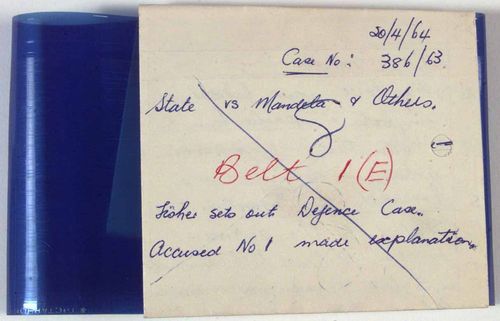 20/4/64
Case No: 386/63
State vs Mandela & Others.
Belt 1(E)
Fisher sets out Defence Case.
Accused No 1 made explanation.